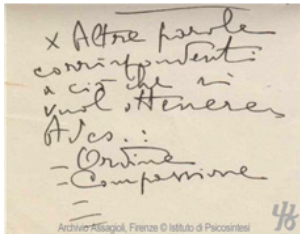 x Altre parole
corrispondenti
a ciò che si
vuol ottenere
Ad es.:
- Ordine
- Compassione
Archivio Assagioli, Firenze © Istituto di Psicosintesi